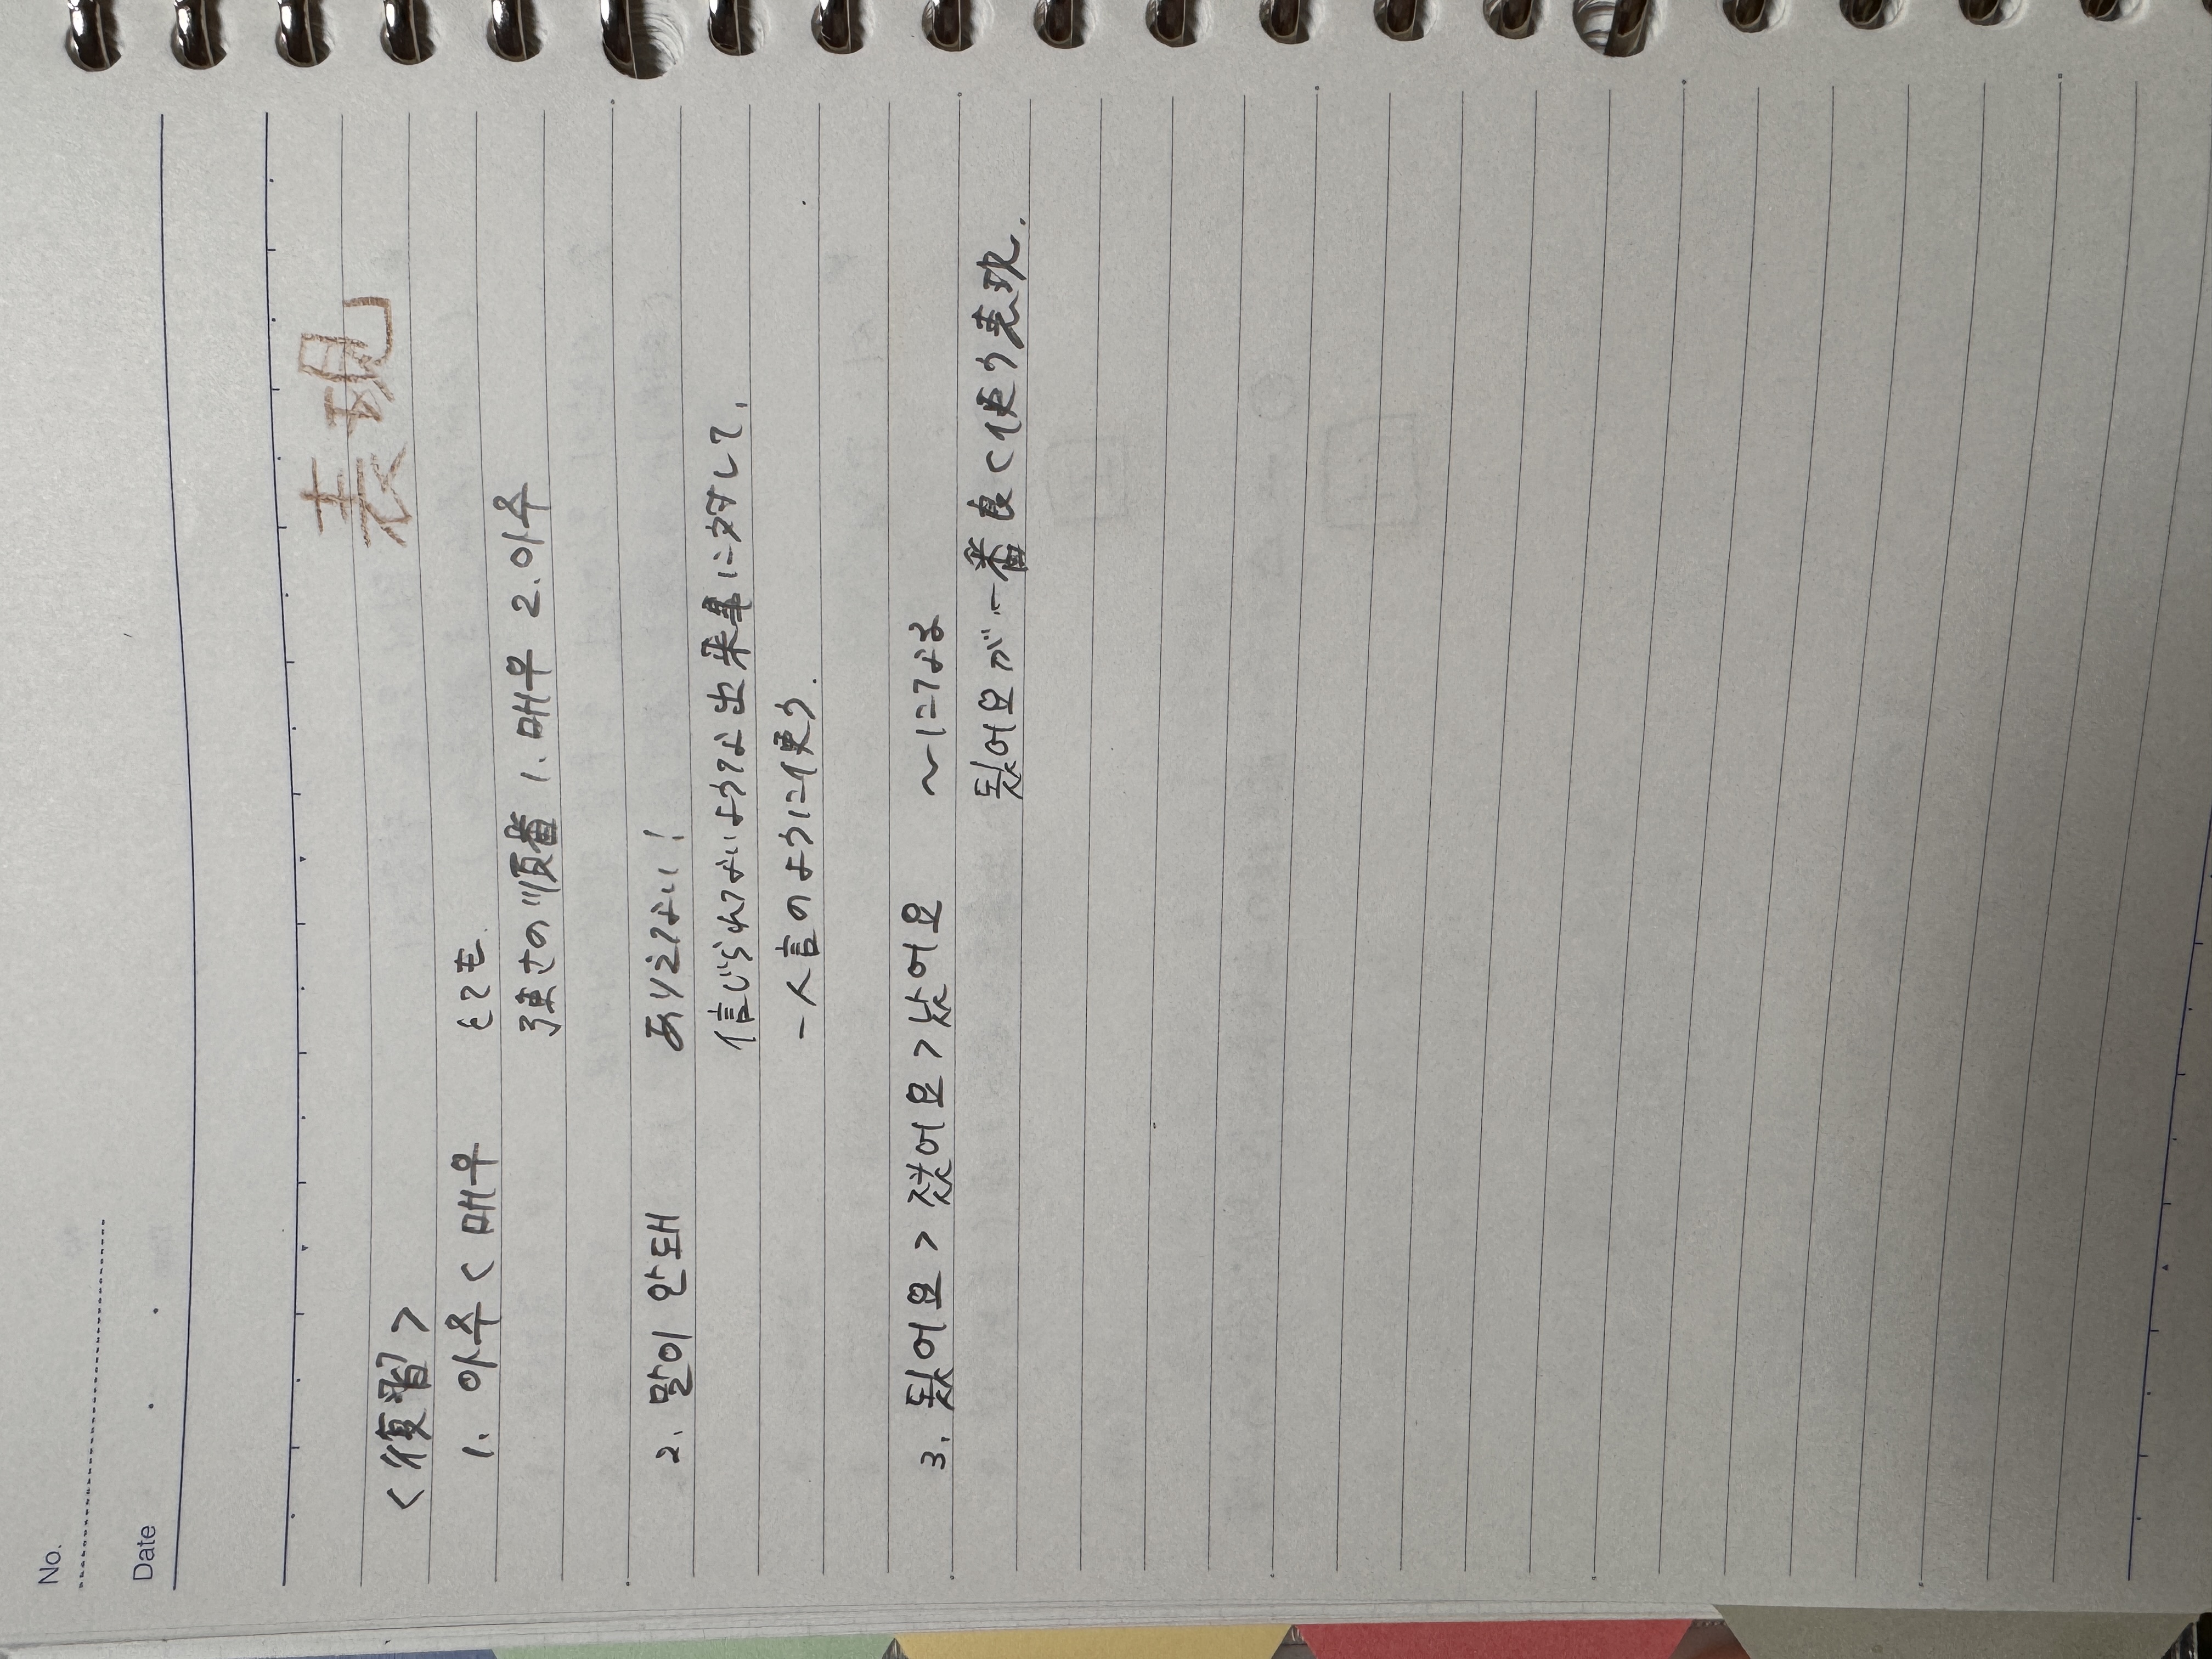 No.
Date
表現
<復習>
1. 아주 < 매우 とても
強さの順番 1. 매우 2. 아주
2. 말이 안돼 ありえない!
信じられないような出来事に対して.
一人言のように使う.
3. 됬어요 > 졌어요 > 났어요 ~になる
됬어요が一番良く使う表現.